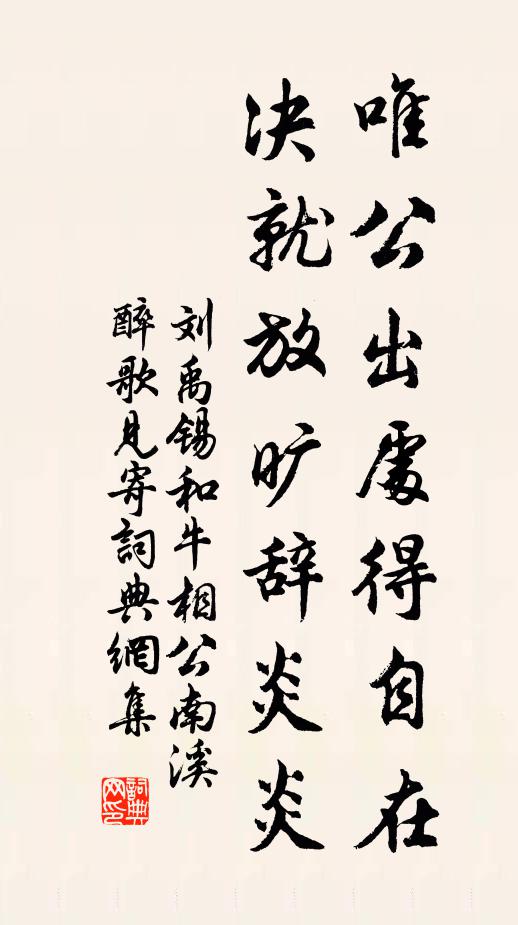 唯公出處得自在
决就放旷辞炎炎
刘禹锡和牛相公南溪
醉歌見寄詞典網集
詞典
网印